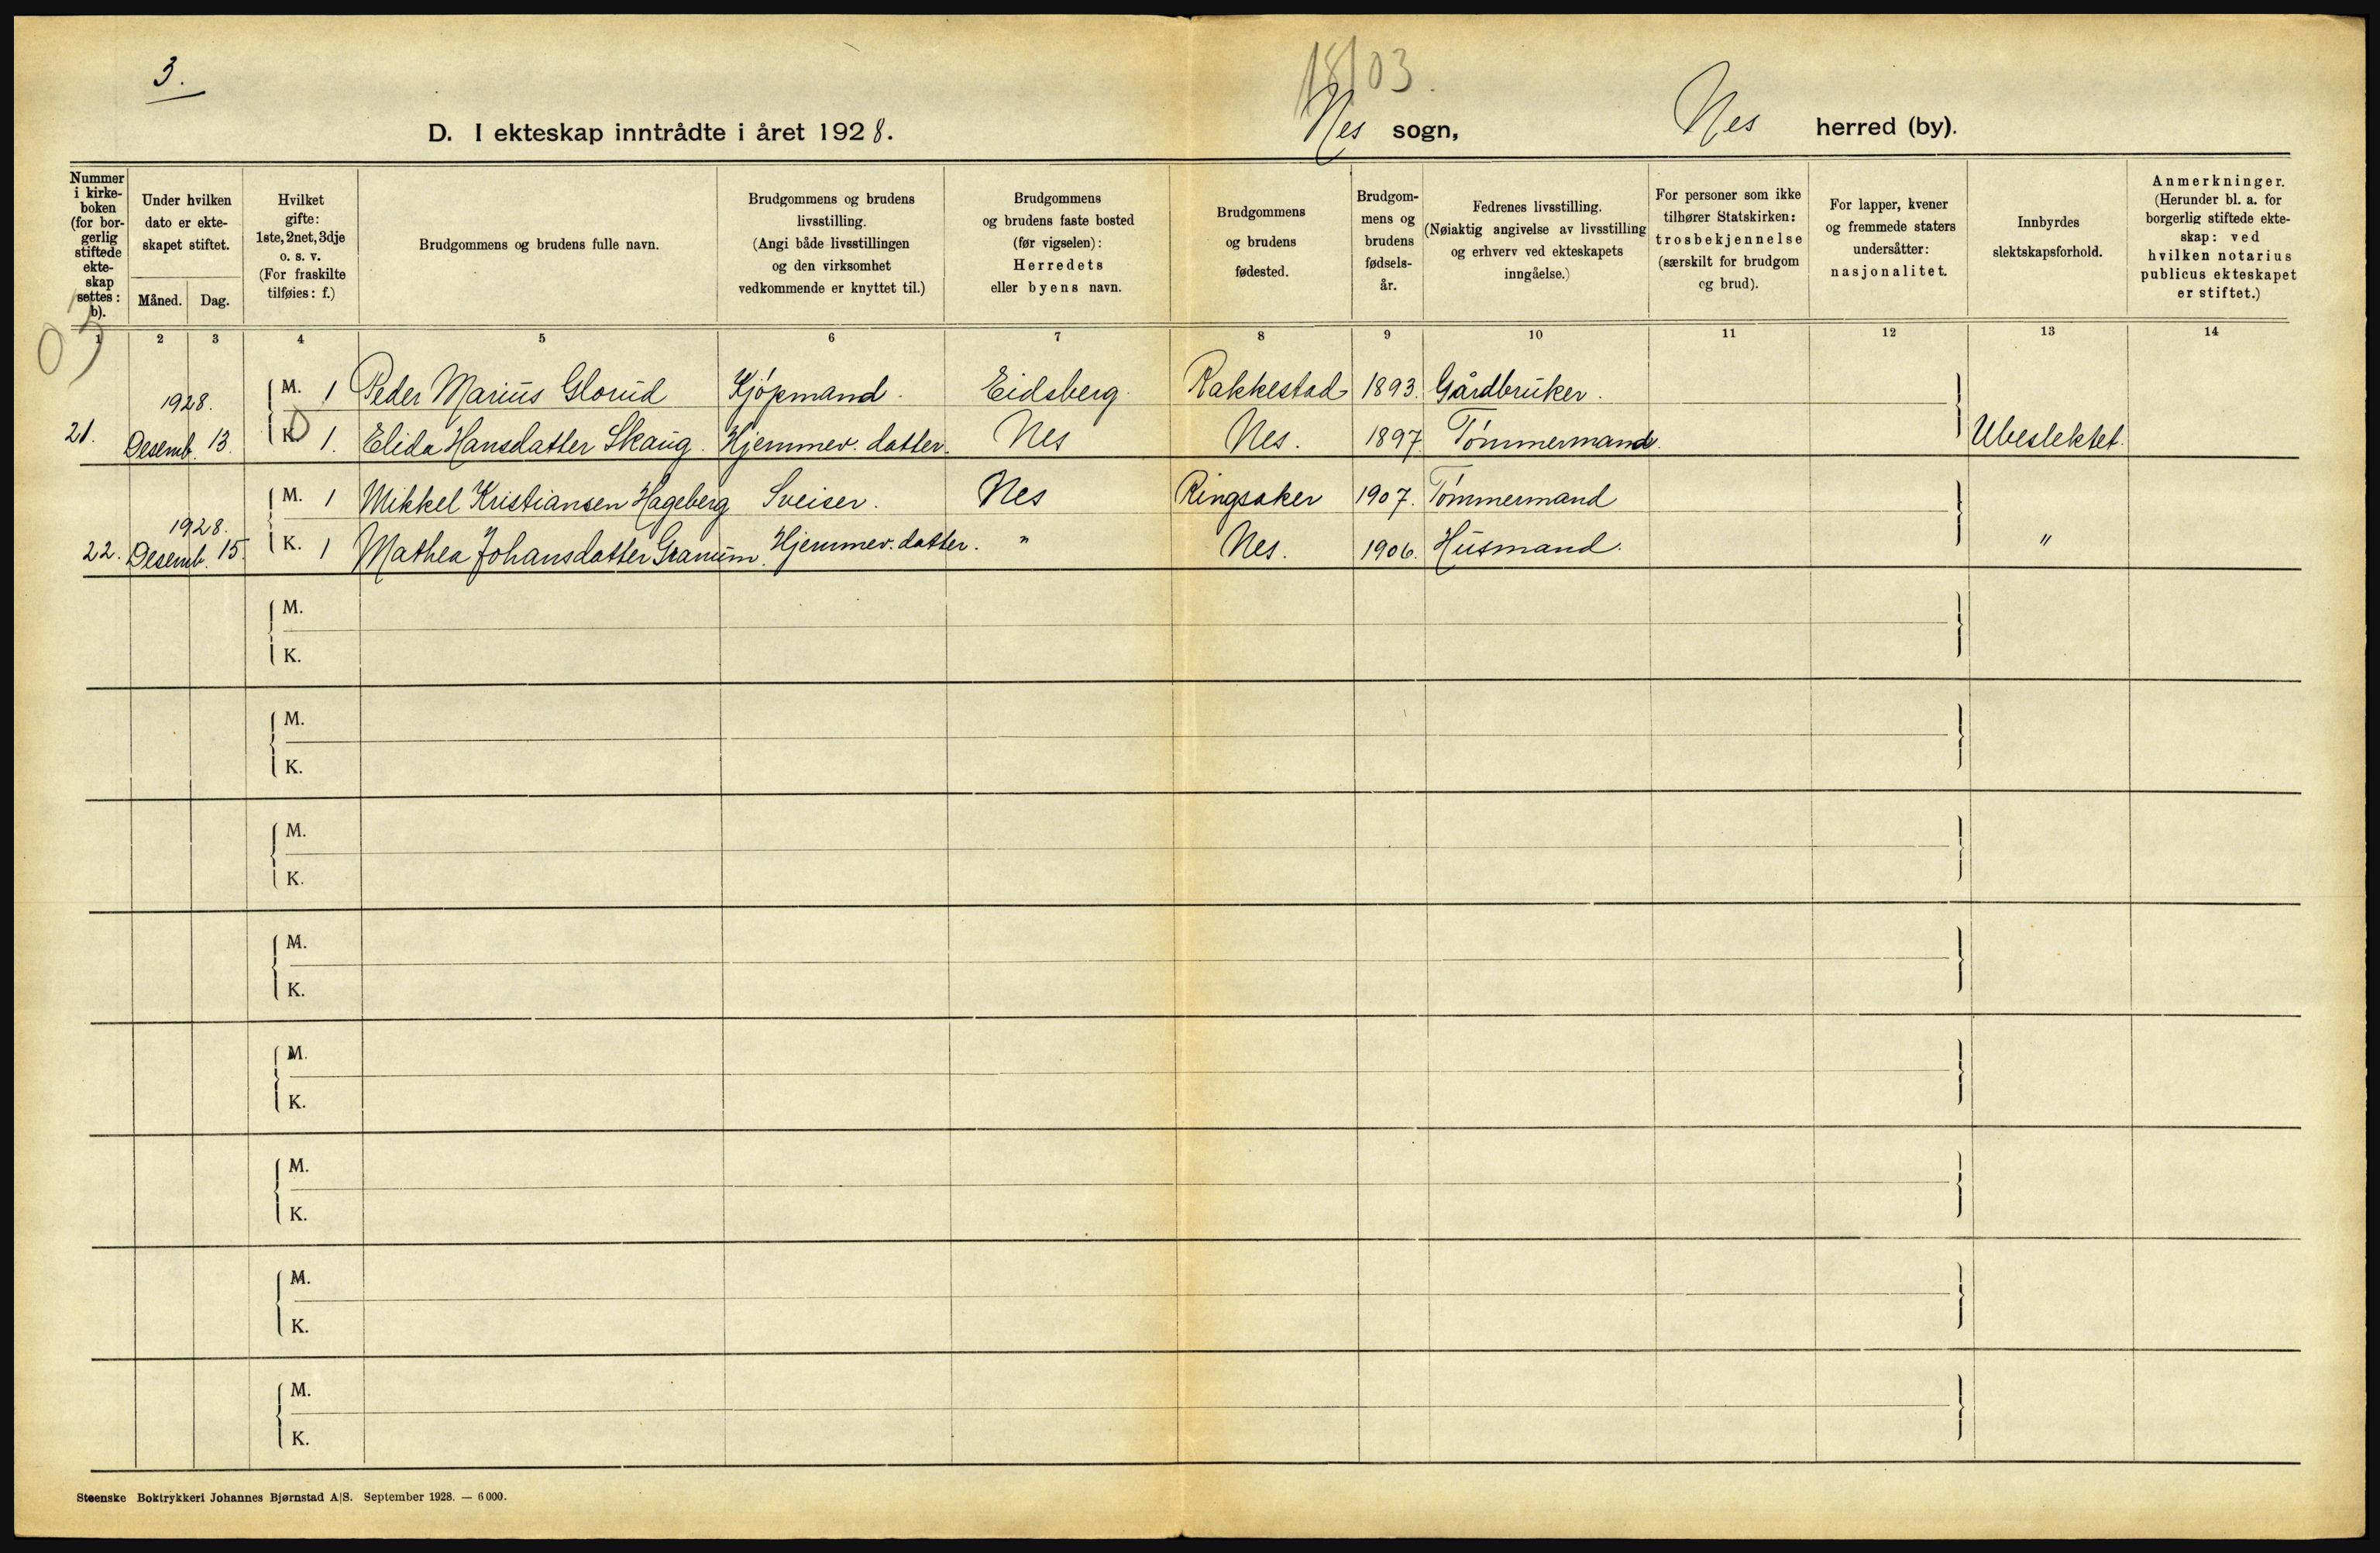 3.
18/03.
D. I ekteskap inntrådte i året 1928.
Nes sogn, Nes herred (by).
Nummer i kirke-boken (for bor-gerlig stiftede ekte-skap settes: b).
Under hvilken dato er ekte-skapet stiftet.
Måned. Dag.
Hvilket gifte: 1ste, 2net, 3dje o. s. v. (For fraskilte tilføies: f.)
Brudgommens og brudens fulle navn.
Brudgommens og brudens livsstilling. (Angi både livsstillingen og den virksomhet vedkommende er knyttet til.)
Brudgommens og brudens faste bosted (før vigselen): Herredets eller byens navn.
Brudgommens og brudens fødested.
Brudgom-mens og brudens fødsels-år.
Fedrenes livsstilling. (Nøiaktig angivelse av livsstilling og erhverv ved ekteskapets inngåelse.)
For personer som ikke tilhører Statskirken: trosbekjennelse (særskilt for brudgom og brud).
For lapper, kvener og fremmede staters undersåtter: nasjonalitet.
Innbyrdes slektskapsforhold.
Anmerkninger. (Herunder bl. a. for borgerlig stiftede ekte-skap: ved hvilken notarius publicus ekteskapet er stiftet.)
03
1 2 3 4 5 6 7 8 9 10 11 12 13 14
1928. M. 1 Peder Marius Glorud Kjöpmand. Eidsberg. Rakkestad 1893. Gårdbruker.
21. Desemb. 13. K. 1. Elida Hansdatter Skaug. Hjemmev. datter. Nes Nes. 1897. Tömmermand. Ubeslektet.
M. 1 Mikkel Kristiansen Hageberg Sveiser. Nes Ringsaker 1907. Tömmermand
1928.
22. Desemb. 15. K. 1 Mathea Johansdatter Granum. Hjemmev. datter. " Nes. 1906. Husmand. "
M.
K.
M.
K.
M.
K.
M.
K.
M.
K.
M.
K.
M.
K.
M.
K.
Steenske Boktrykkeri Johannes Bjørnstad A|S. September 1928. — 6000.